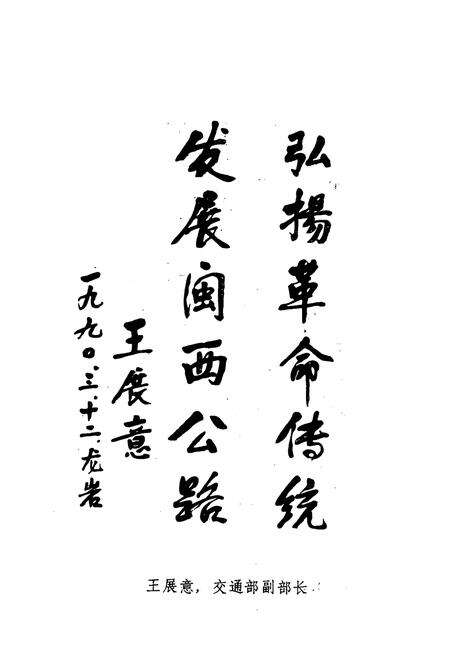 弘揚革命传统
发展闽西公路
王展意
一九九〇.三.十二.龙岩
王展意，交通部副部长